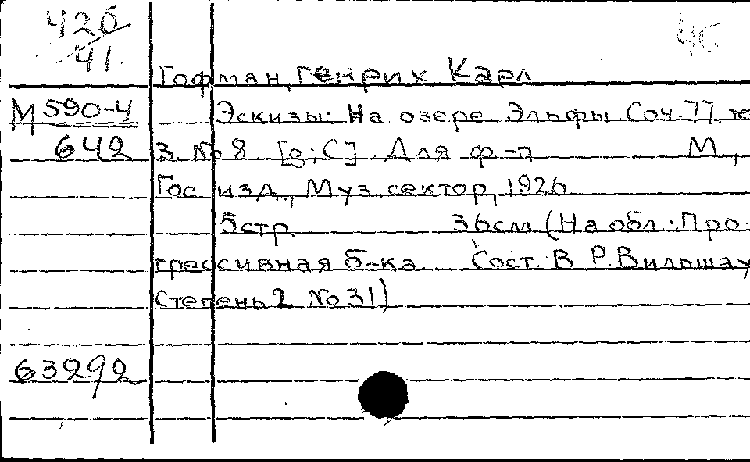 426
41.
4С
Гофман, Генрих Карл
М 590-4
642
Эскизы: На озере. Эльфы Соч. 77 те
з. № 8 [g; C]. Для ф-п М,
Гос. изд., Муз. сектор, 1926
5 стр. 36 см (На обл.: Про-
грессивная б-ка Сост. В. Р. Вильшау
Степень 2 № 31)
63292